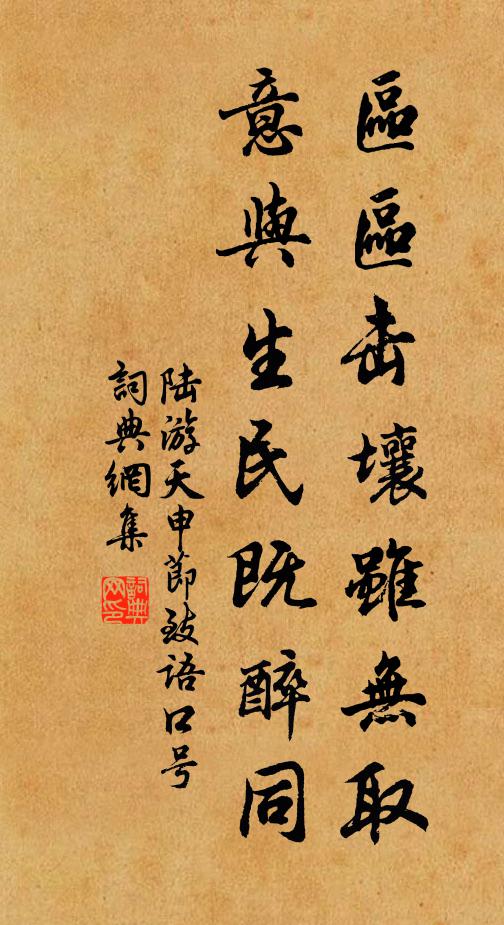 區區击壤雖無取
意與生民既醉同
陆游天申節致语口号
詞典網集
詞典網印